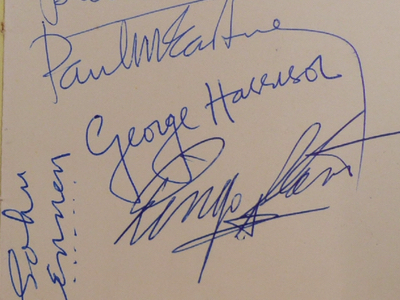 Paul McCartney
George Harrison
Ringo Starr
John
Lennon